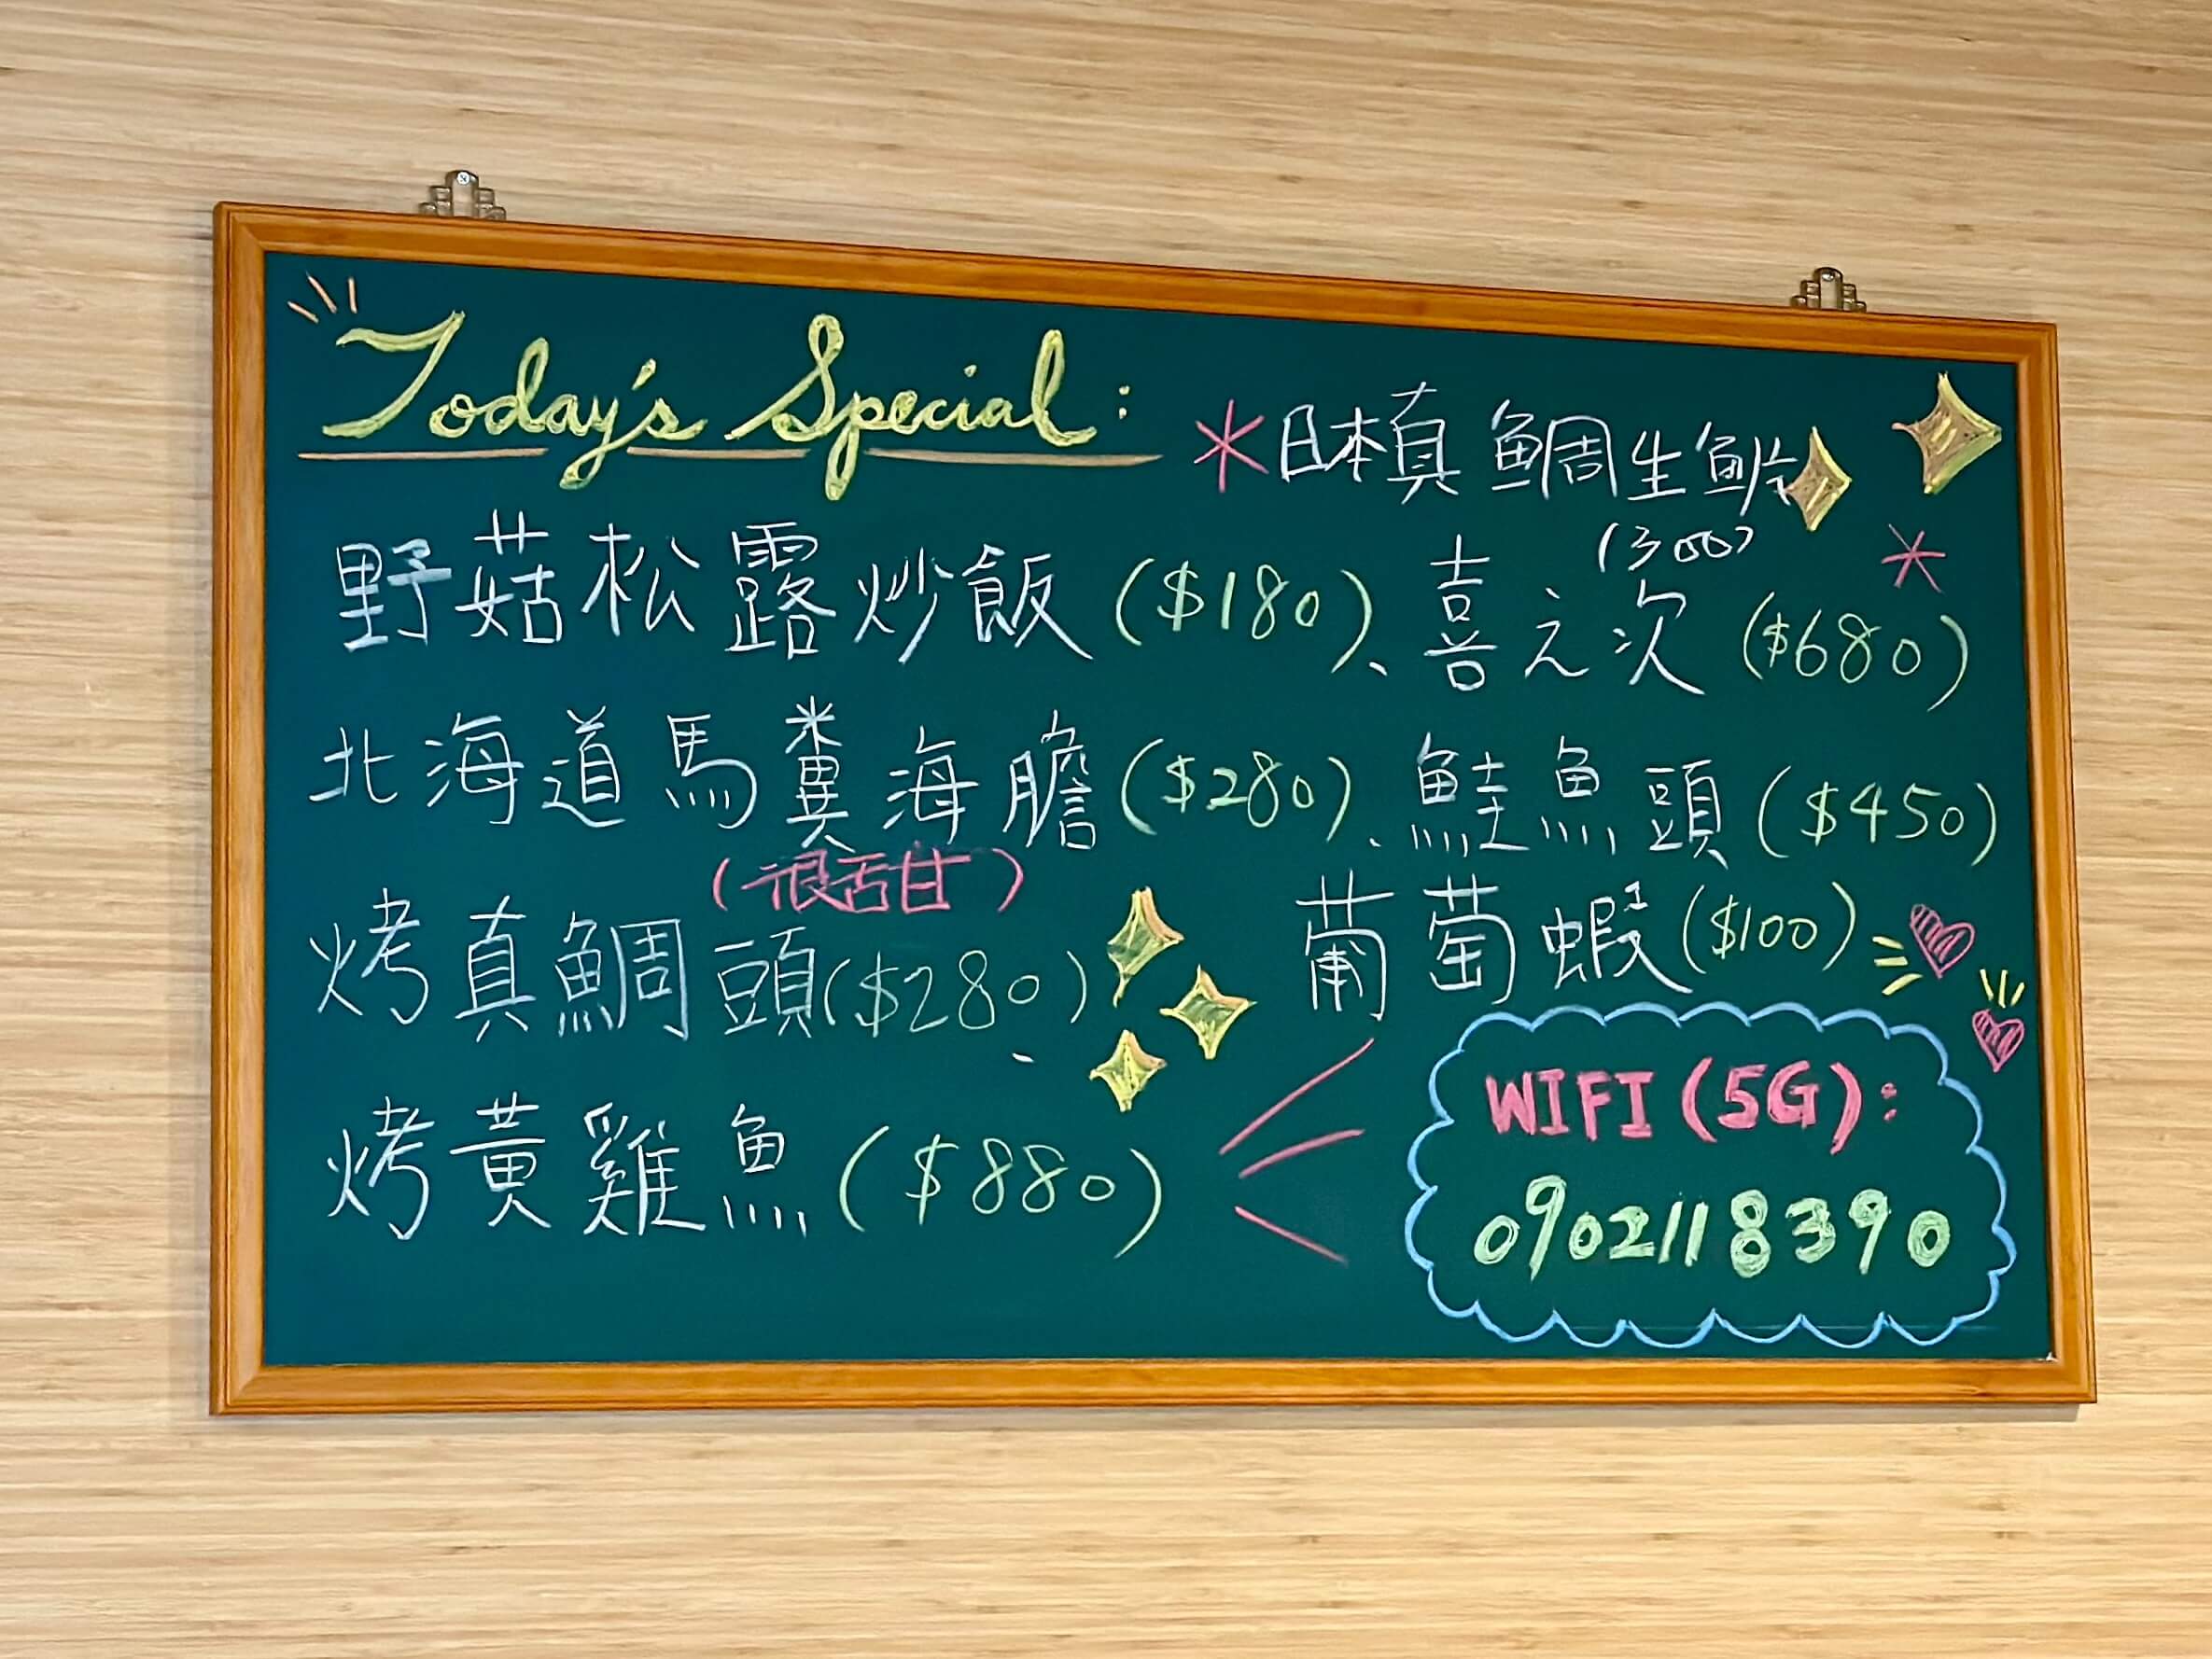 Today's Special:
*日本真鯛生魚片
(300)
*
野菇松露炒飯($180)、喜之次($680)
北海道馬糞海膽($280)、鮭魚頭($450)
(很甜)
烤真鯛頭($280)、葡萄蝦($100)
烤黃雞魚($880)
WIFI(5G):
0902118390